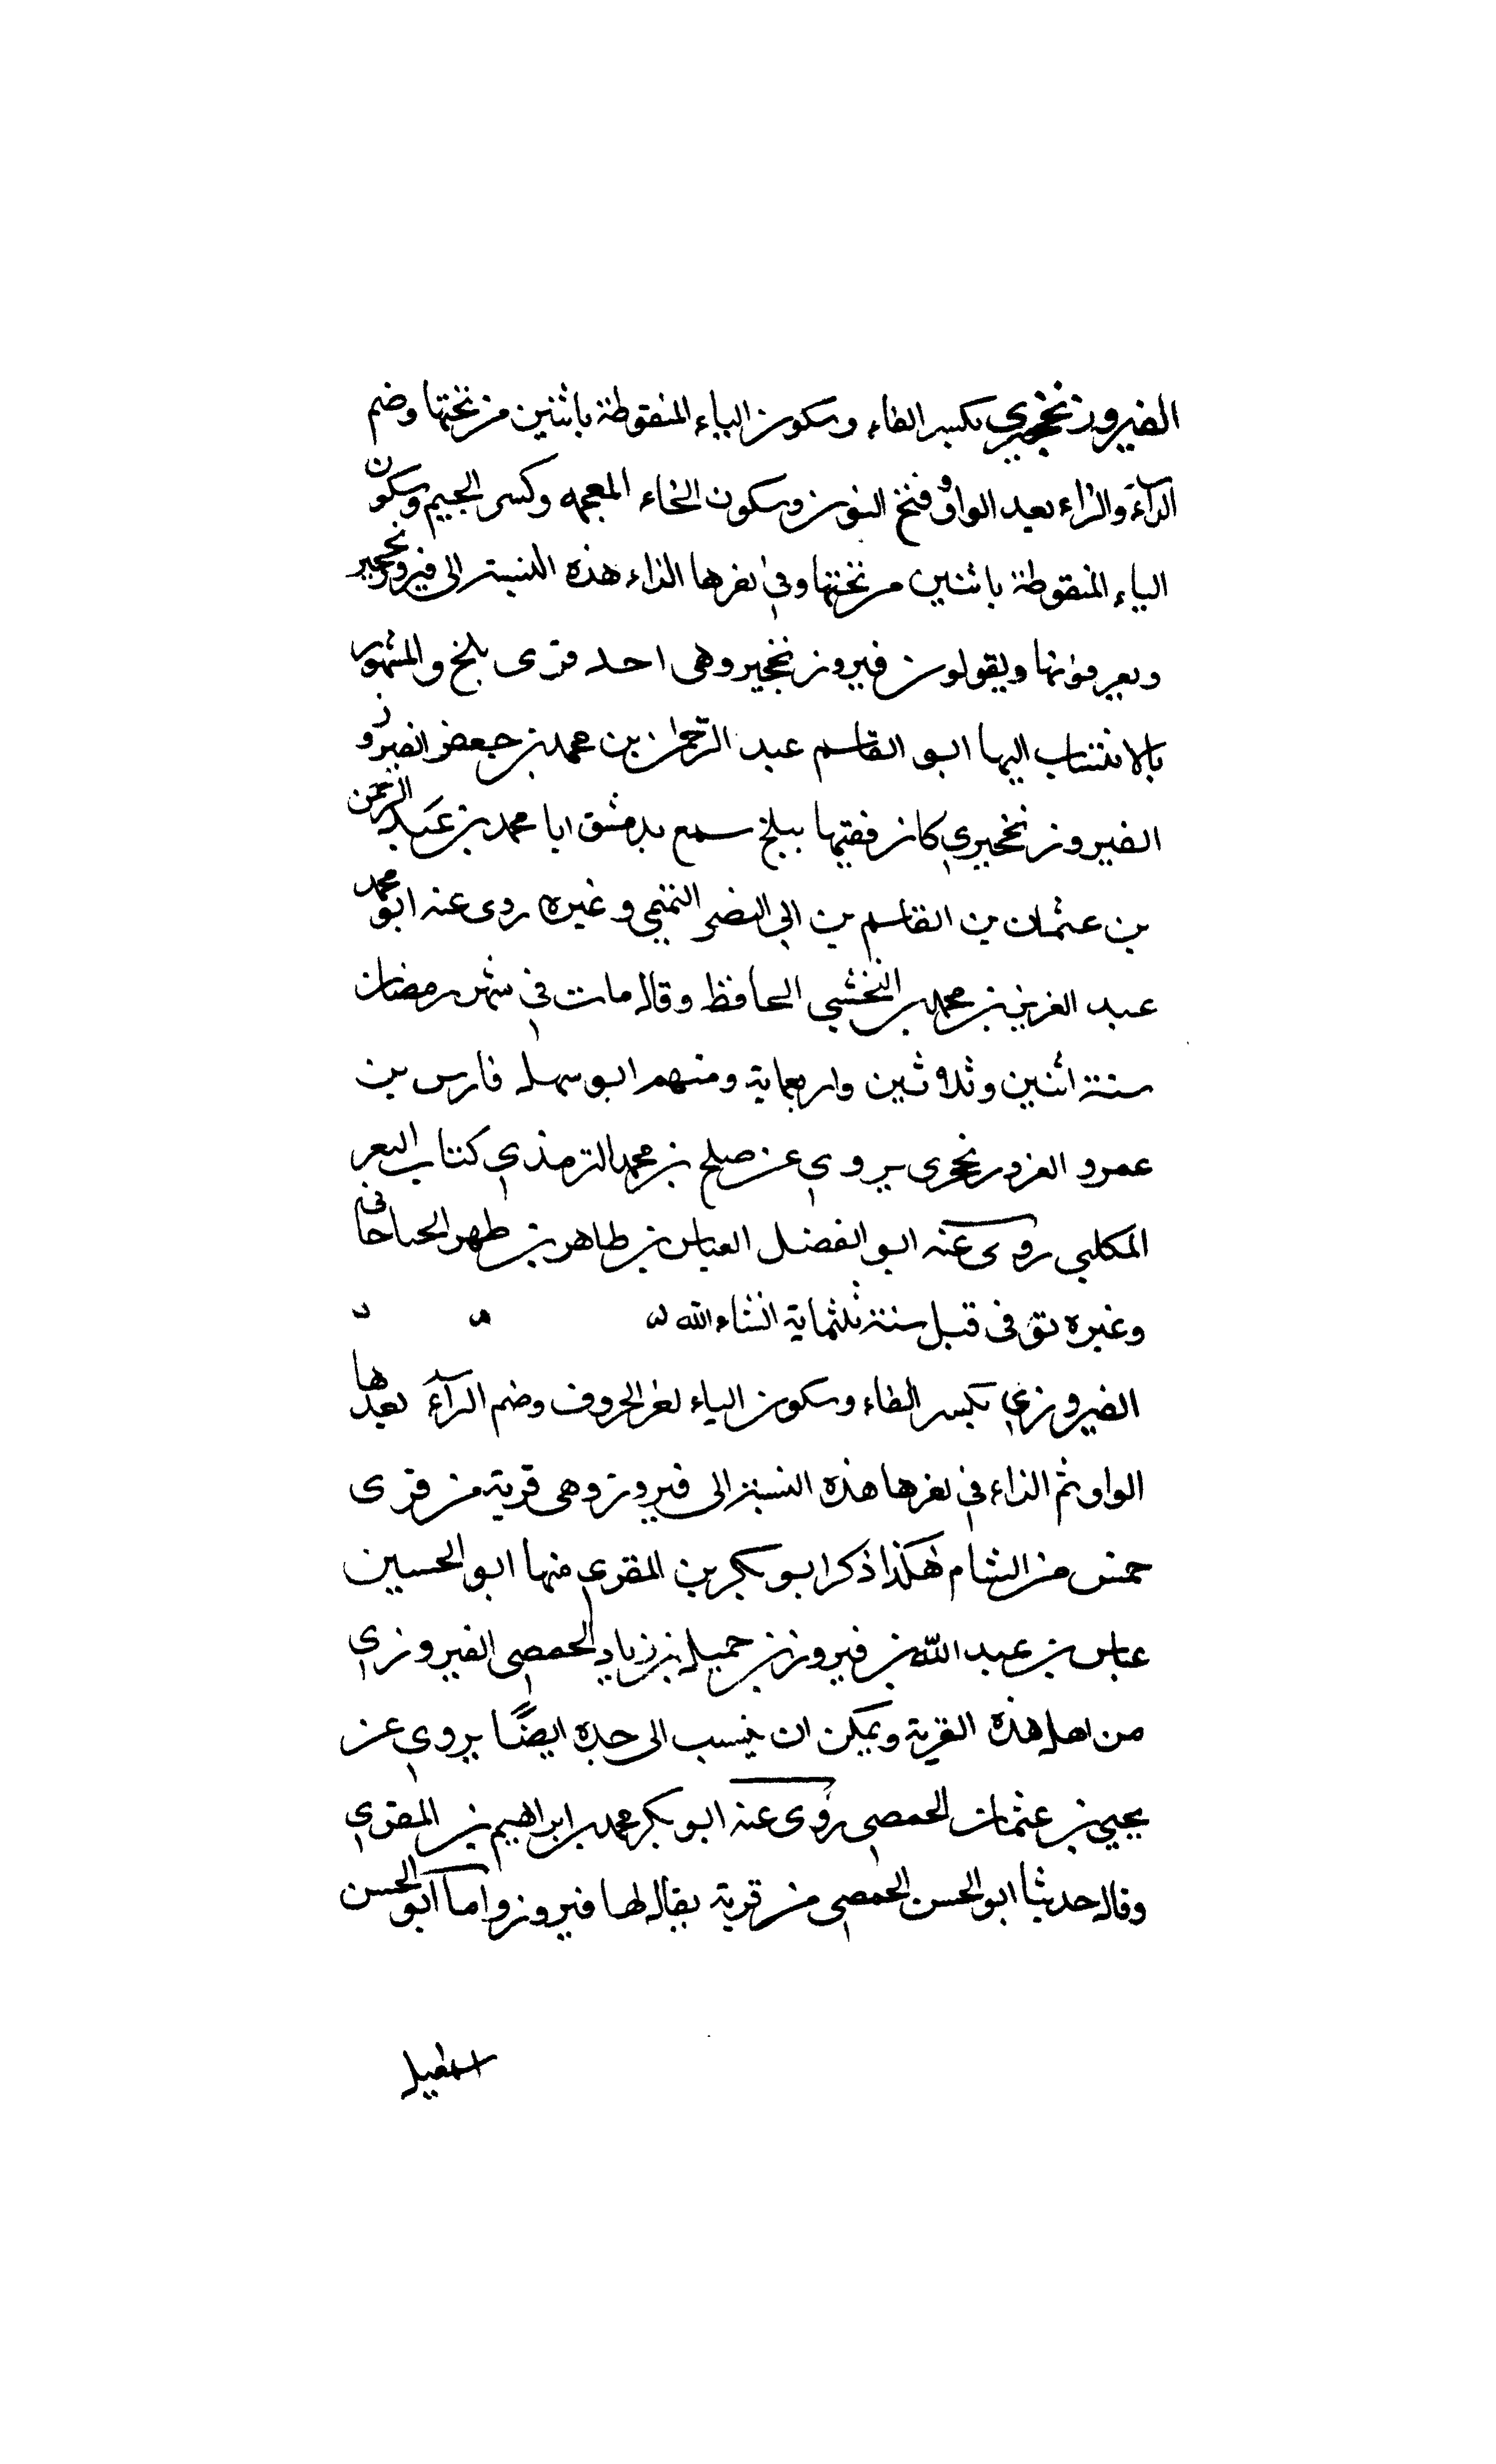 الفيروزنخجيري بكسر الفاء وسكون الياء المنقوطة باثنين من تحتها وضم
الراء والزاء بعد الواو وفتخ النون وسكون الخاء المعجمه وكسر الجيم وسكون
الياء المنقوطة باثنين من تحتها وفي اخرها الراء هذه النسبة الى فيروزنخجير
ويعرفونها ويقولون فيروز نخجير وهى احد قرى بلخ والمشهور
بالانتساب اليها ابو القاسم عبد الرحمن بن محمد بن جعفر الفيروز
الفيروز نخجيري كان فقيها ببلخ سمع بدمشق ابا محمد بن عبد الرحمن
بن عثمان بن القاسم بن ابي النصر التميمي وغيره روى عنه ابو محمد
عبد العزيز بن محمد بن النخشبي الحافظ وقال مات في شهر رمضان
سنة اثنين وثلاثين واربعماية ومنهم ابو سهل فارس بن
عمرو يروي عن صلح بن محمد الترمذي كتاب
الكلبي روى عنه ابو الفضل العباس بن طاهر بن طهر
وغيره توفى قبل سنة ثلثماية انشاء الله
الفيروزي بكسر الفاء وسكون الياء اخر الحروف وضم الراء بعدها
الواو ثم الزاء في اخرها هذه النسبة الى فيروز وهى قرية من قرى
حمص من الشام هكذا ذكر ابو بكر بن المقري منها ابو الحسين
عباس بن عبد الله بن فيروز بن جميل بن زياد الحمصي الفيروزي
من اهل هذه القرية ويمكن ان ينسب الى جده ايضًا يروي عن
يحيي بن عثمان الحمصي روى عنه ابو بكر محمد بن ابراهيم بن المقري
وقال حدثنا ابو الحسن الحمصي من قرية يقال لها فيروز واما ابو الحسن
اسمعيل